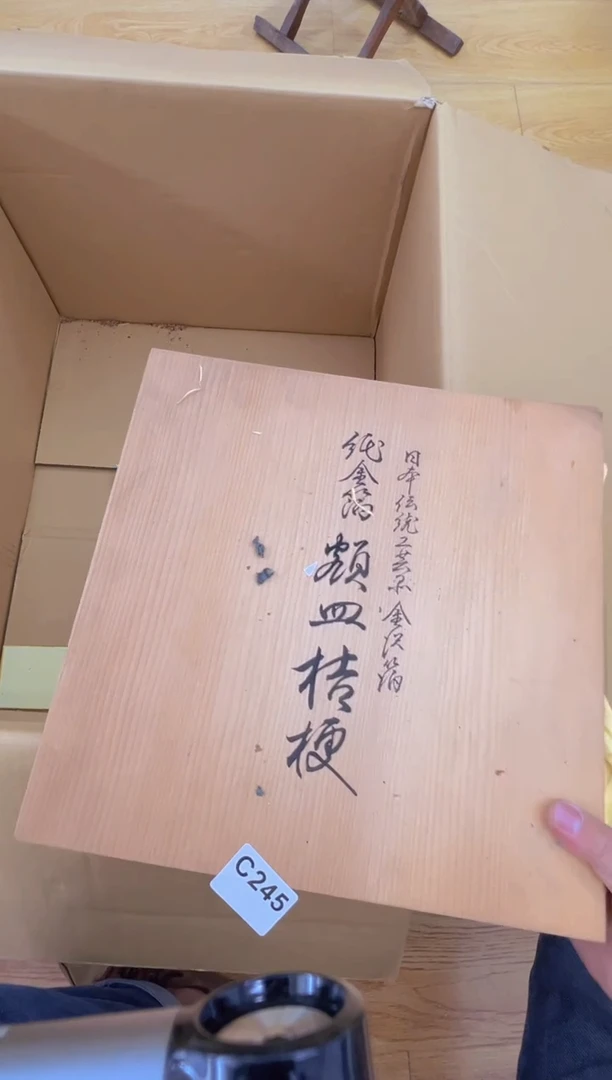 日本伝統工芸品 金沢箔
純金箔 額皿 桔梗
C245